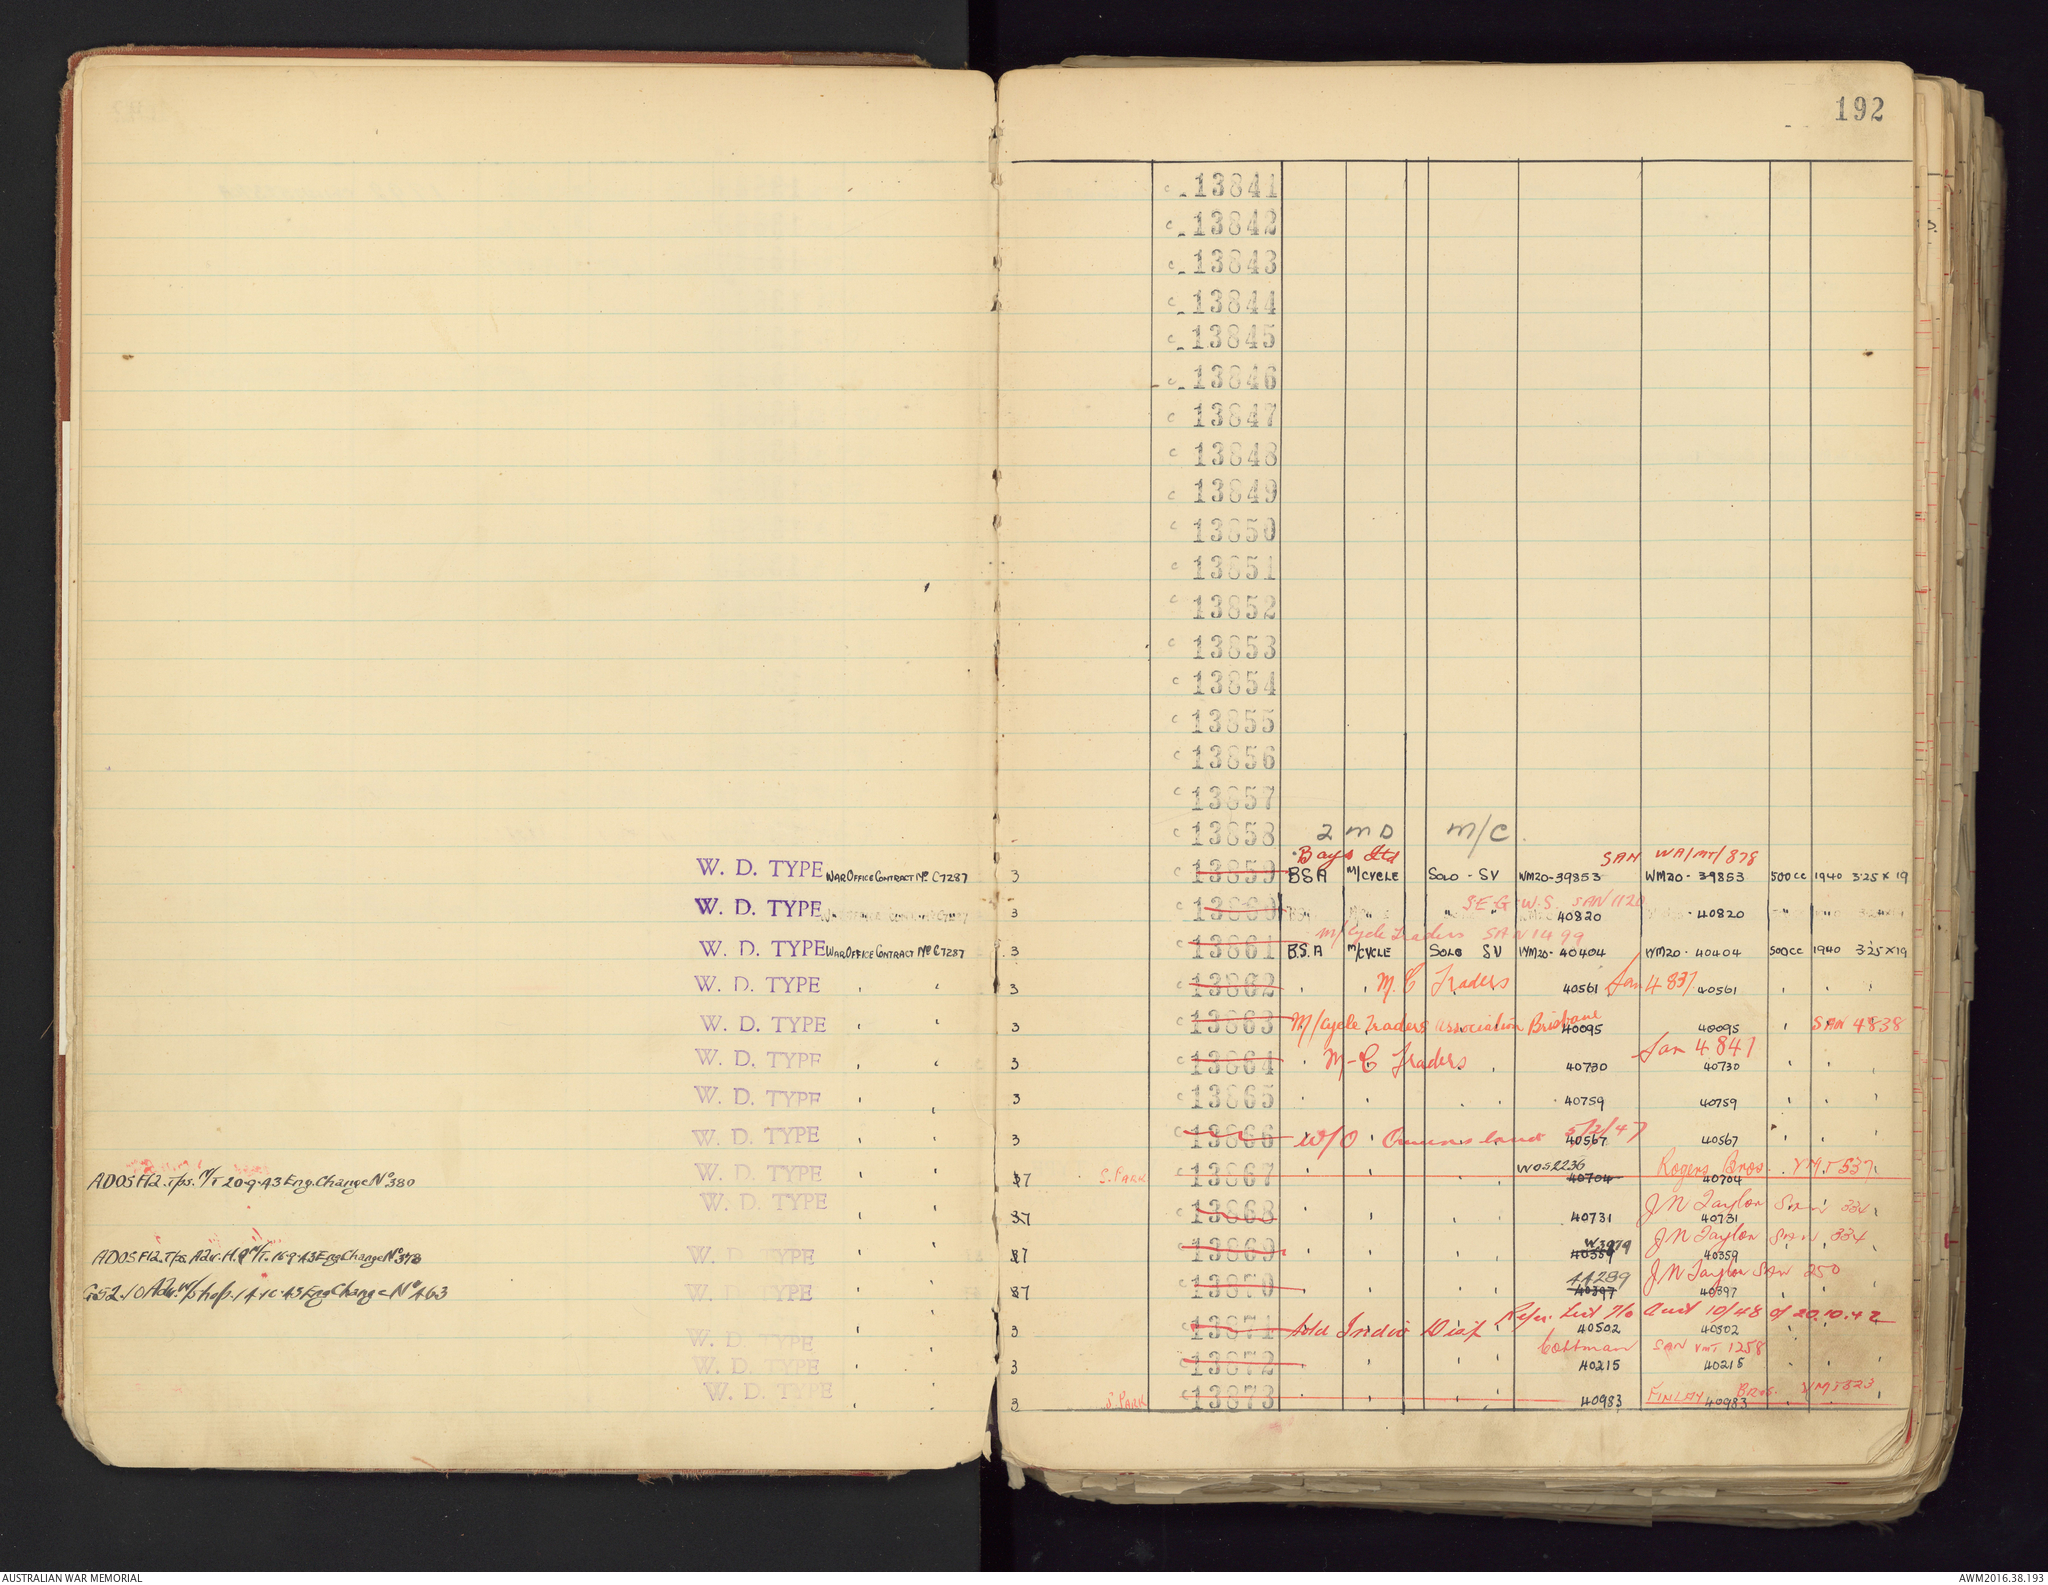 192
c 13841
c 13842
c 13843
c 13844
c 13845
c 13846
c 13847
c 13848
c 13849
c 13850
c 13851
c 13852
c 13853
c 13854
c 13855
c 13856
c 13857
c 13858 2 M D M/C.
Bays Ltd SAN WA/MT/878
W. D. TYPE WAR OFFICE CONTRACT No C7287 3 c 13859 BSA M/CYCLE SOLO - SV WM20-39853 WM20-39853 500cc 1940 3·25 x 19
W.S. SAN 1120
W. D. TYPE 3 c 13860 40820 40820
M/Cycle Traders SAN 1499
W. D. TYPE WAR OFFICE CONTRACT No C7287 3 c 13861 B.S.A M/CYCLE SOLO SV WM20-40404 WM20-40404 500cc 1940 3·25 x 19
W. D. TYPE 3 c 13862 M.C Traders 40561 San 4837 40561
W. D. TYPE 3 c 13863 M/Cycle Traders Association Brisbane 40095 40095 SAN 4838
W. D. TYPE 3 c 13864 M-C Traders 40730 San 4847 40730
W. D. TYPE 3 c 13865 40759 40759
W. D. TYPE 3 c 13866 W/O 40567 40567
ADOS F12. T/ps. M/T 20·9·43 Eng. Change No 380 W. D. TYPE 37 S. PARK c 13867 WOS2236 40704 Rogers Bros. VMT 537 40704
W. D. TYPE 37 c 13868 40731 J N Taylor SAN 334 40731
ADOS F12. T/ps. Adv. H.Q M/T. 16·9·43 Eng Change No 378 W. D. TYPE 37 c 13869 W3979 40359 J N Taylor SAN 334 40359
W. D. TYPE 37 c 13870 44289 40397 J N Taylor SAN 250 40397
W. D. TYPE 3 c 13871 Sold 40502 10/48 of 20.10.42 40502
W. D. TYPE 3 c 13872 40215 SAN VMT 1258 40215
W. D. TYPE 3 S. PARK c 13873 40983 FINLAY BROS. VMT 323 40983
AUSTRALIAN WAR MEMORIAL
AWM2016.38.193